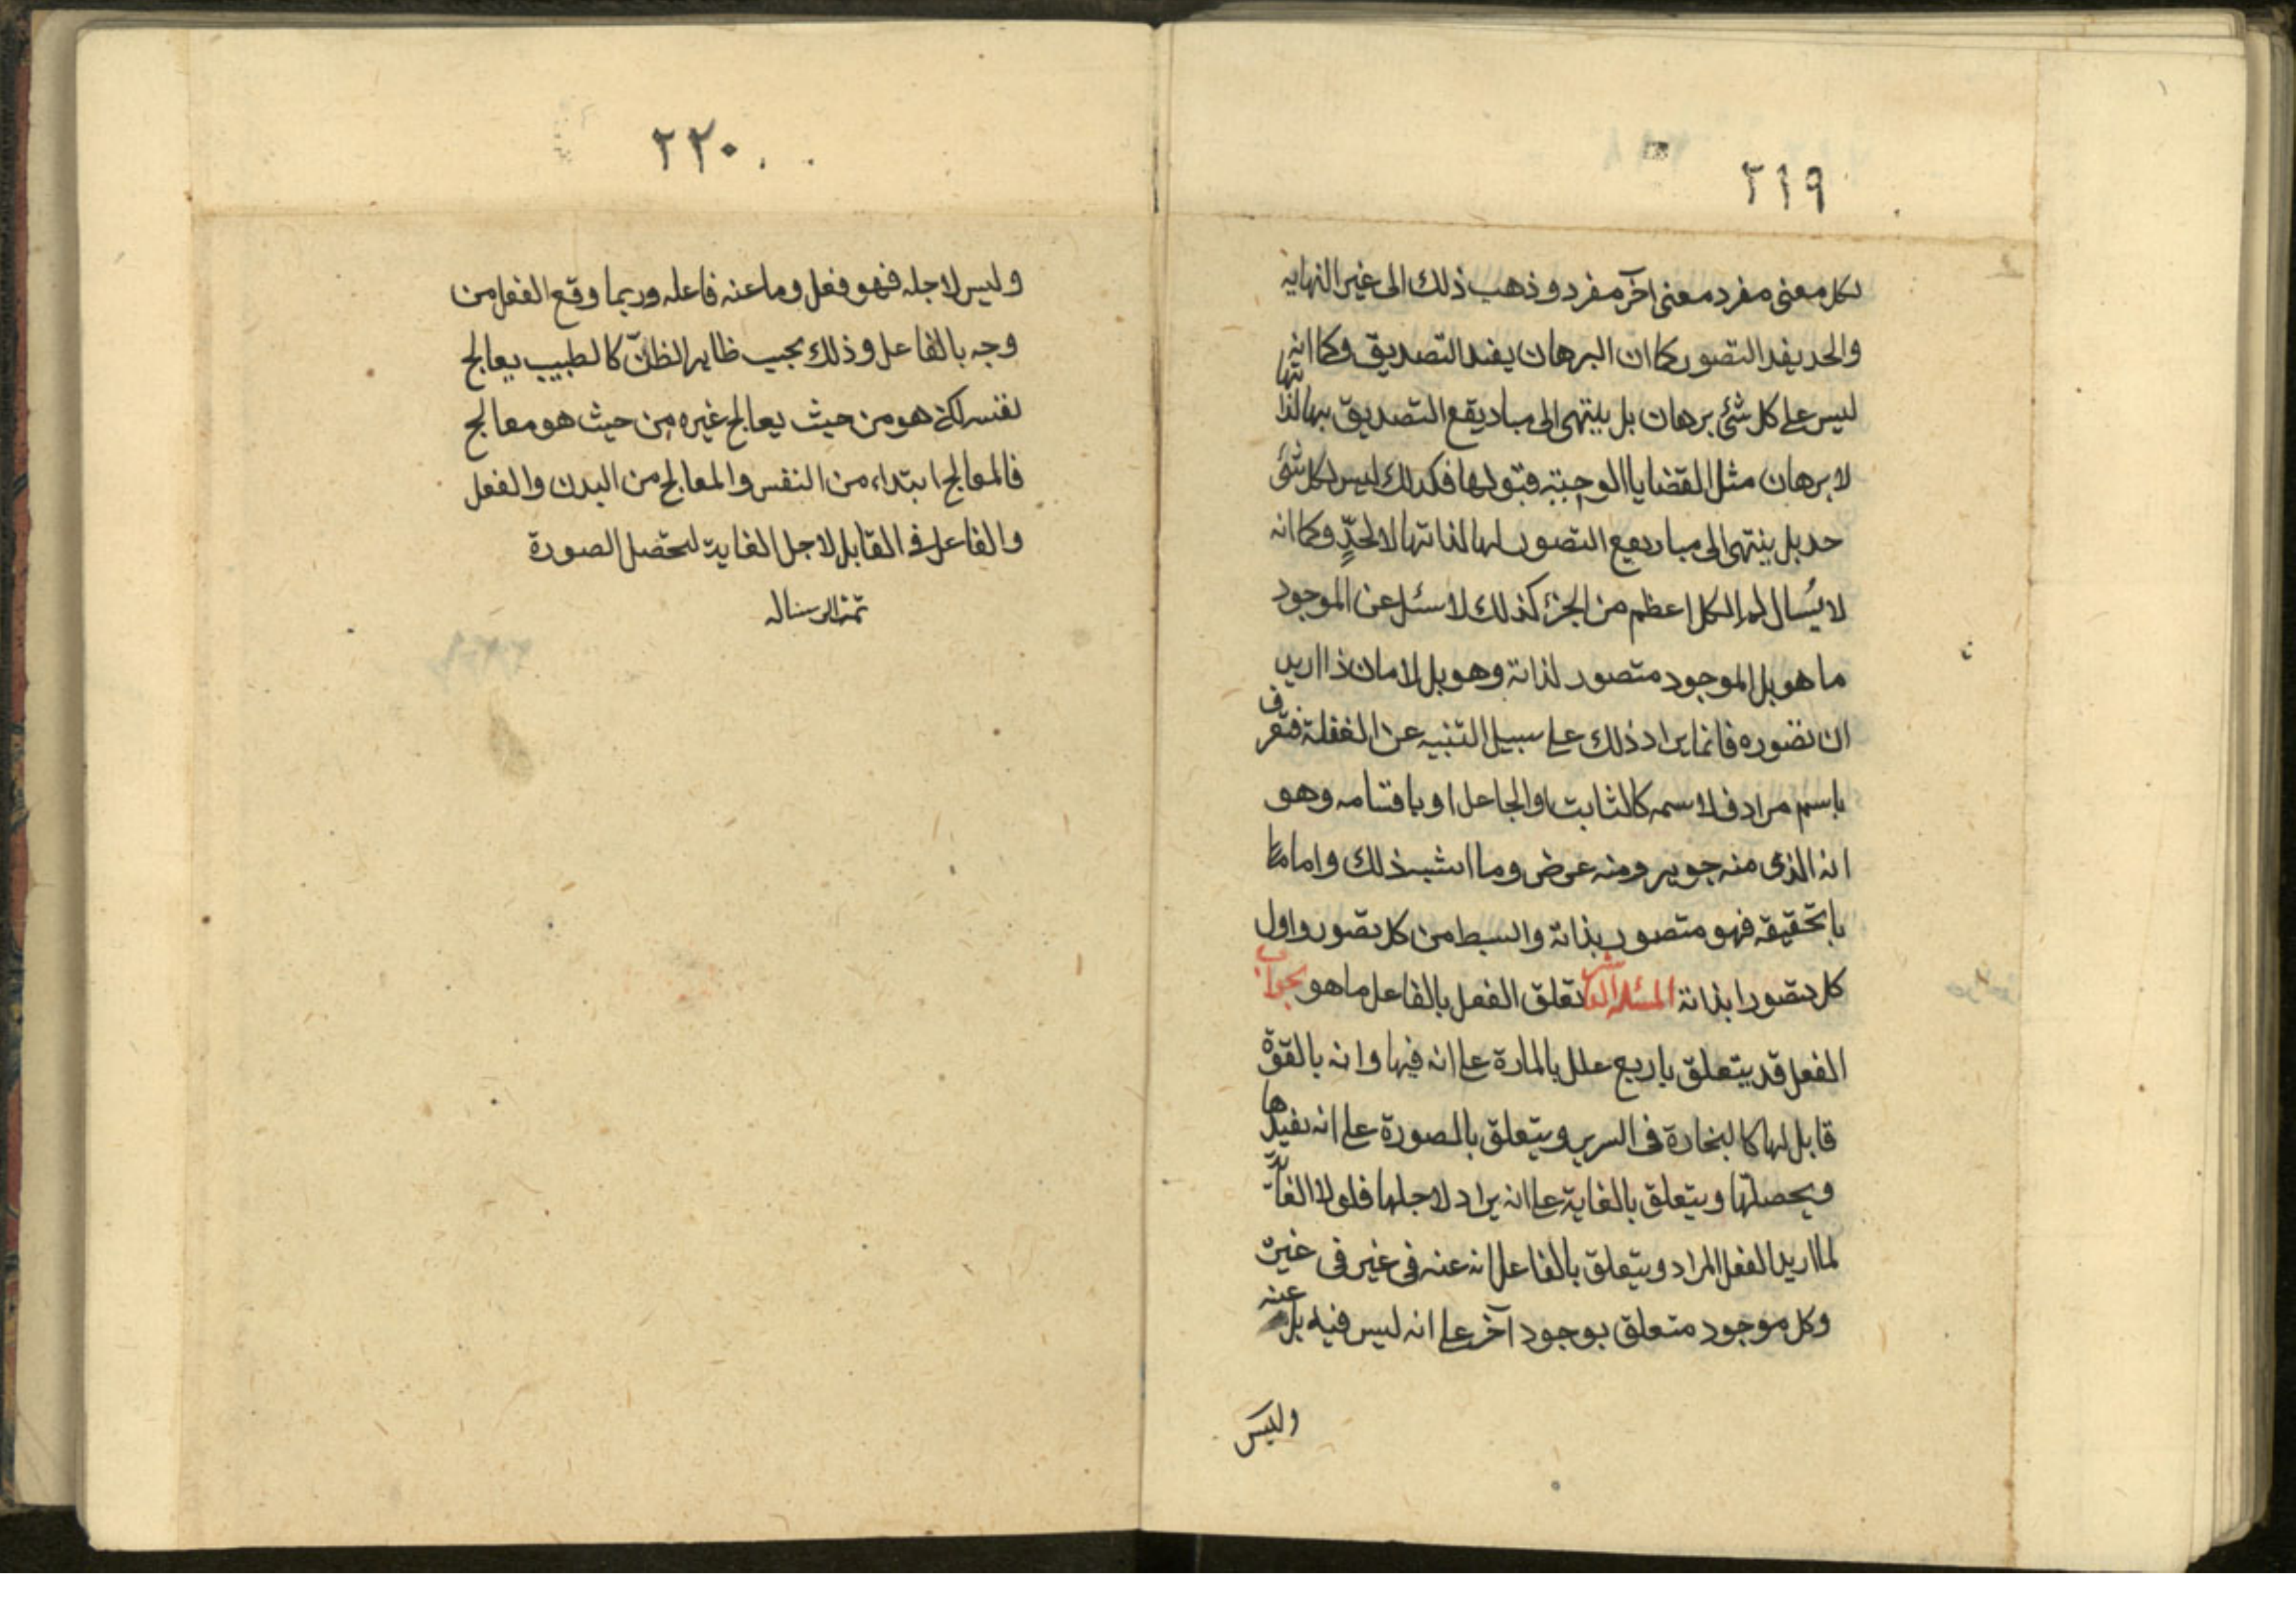 ٢١٩
لكل معنى مفرد معنى آخر مفرد وذهب ذلك الى غير النهاية
والحد يفد التصور كما ان البرهان يفد التصديق وكما انه
ليس على كل شئ برهان بل ينتهى الى مباد يقع التصديق بها لذاتها
لا برهان مثل القضايا الوجبتة قبولها فكذلك ليس لكل شئ
حد بل ينتهى الى مباد يقع التصور لها لذاتها لا لحدٍّ وكما انه
لا يسُال لم الكل اعظم من الجزء كذلك لا سئل عن الموجود
ما هو بل الموجود متصور لذاته وهو بل لامان ذا اريد
ان تصوره فانما يراد ذلك على سبيل التنبيه عن الغفلة فتعرف
باسم مرادف لاسمه كالثابت اوالجاحل او باقتسامه وهو
انه الذى منه جوهر ومنه عرض وما اشبه ذلك واما
با تحقيقه فهو متصور بذاته وابسط من كل تصور واول
كل متصور ابذاته المسئلة تعلق الفعل بالفاعل ما هو بجواب
الفعل قد يتعلق باربع علل بالمادة على انه فيها وانه بالقوة
قابل لها كالبخارة فى السرير ويتعلق بالصورة على انه يفيدها
ويحصلها ويتعلق بالغاية على انه يراد لاجلها فلولا الغاية
لما اريد الفعل المراد ويتعلق بالفاعل انه عنه فى غير فى غيره
وكل موجود متعلق بوجود آخر على انه ليس فيه بل عنه
وليس
٢٢٠
وليس لاجله فهو فعل وما عنه فاعله وربما وقع الفعل من
وجه بالفاعل وذلك بحيب ظاهر الظنّ كالطبيب يعالج
نفسه لكنه هو من حيث يعالج غيره من حيث هو معالج
فالمعالج ابتداء من النفس والمعالج من البدن والفعل
والفاعل فى القابل لاجل الغاية لتحصل الصورة
تمت الرسالة